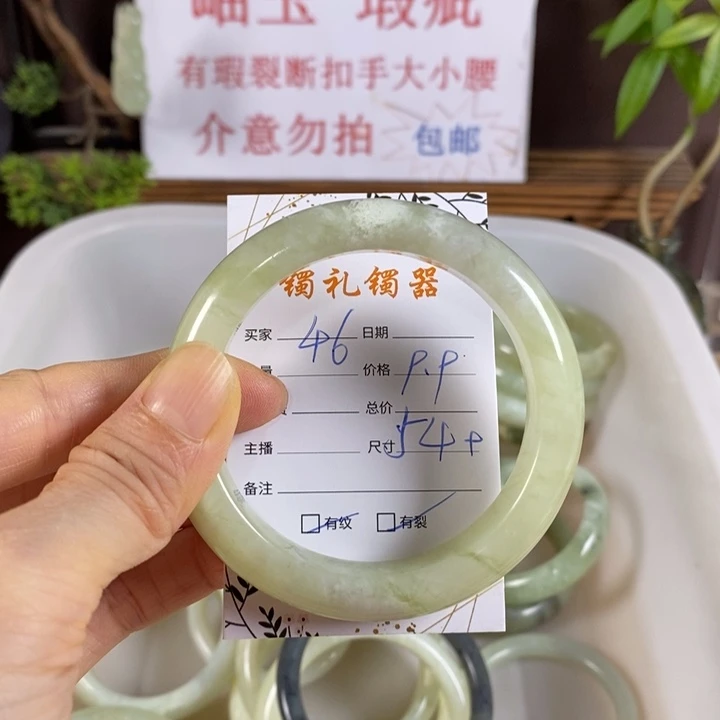 岫玉 瑕疵
有瑕裂断扣手大小腰
介意勿拍 包邮
镯礼镯器
买家 46 日期
量 价格 P.P
总价
主播 尺寸 54+
备注
有纹 有裂